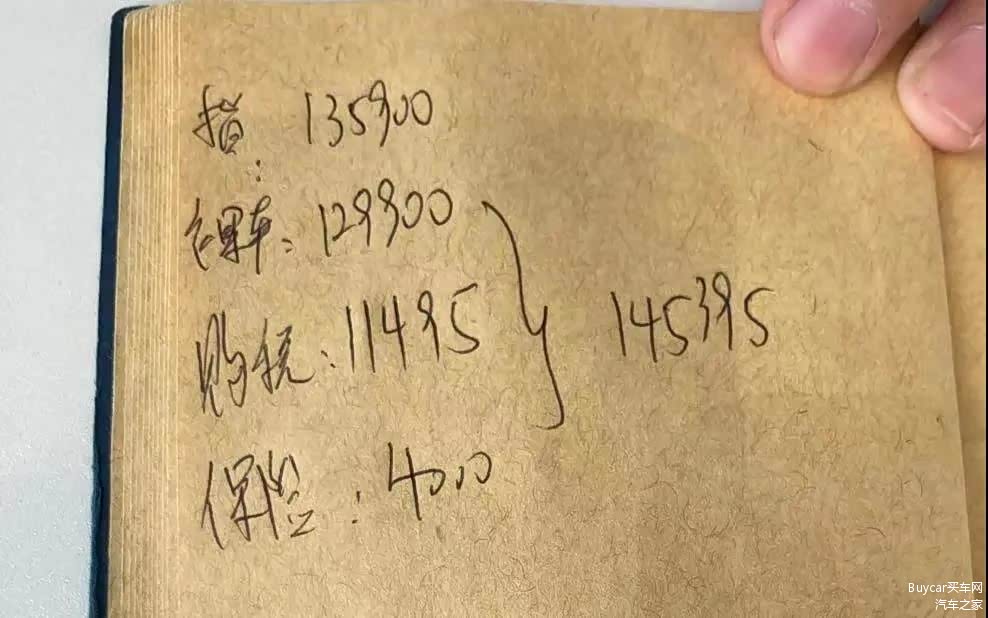 指: 135900
裸车: 129900
购税: 11495
145395
保险: 4000
Buycar买车网
汽车之家